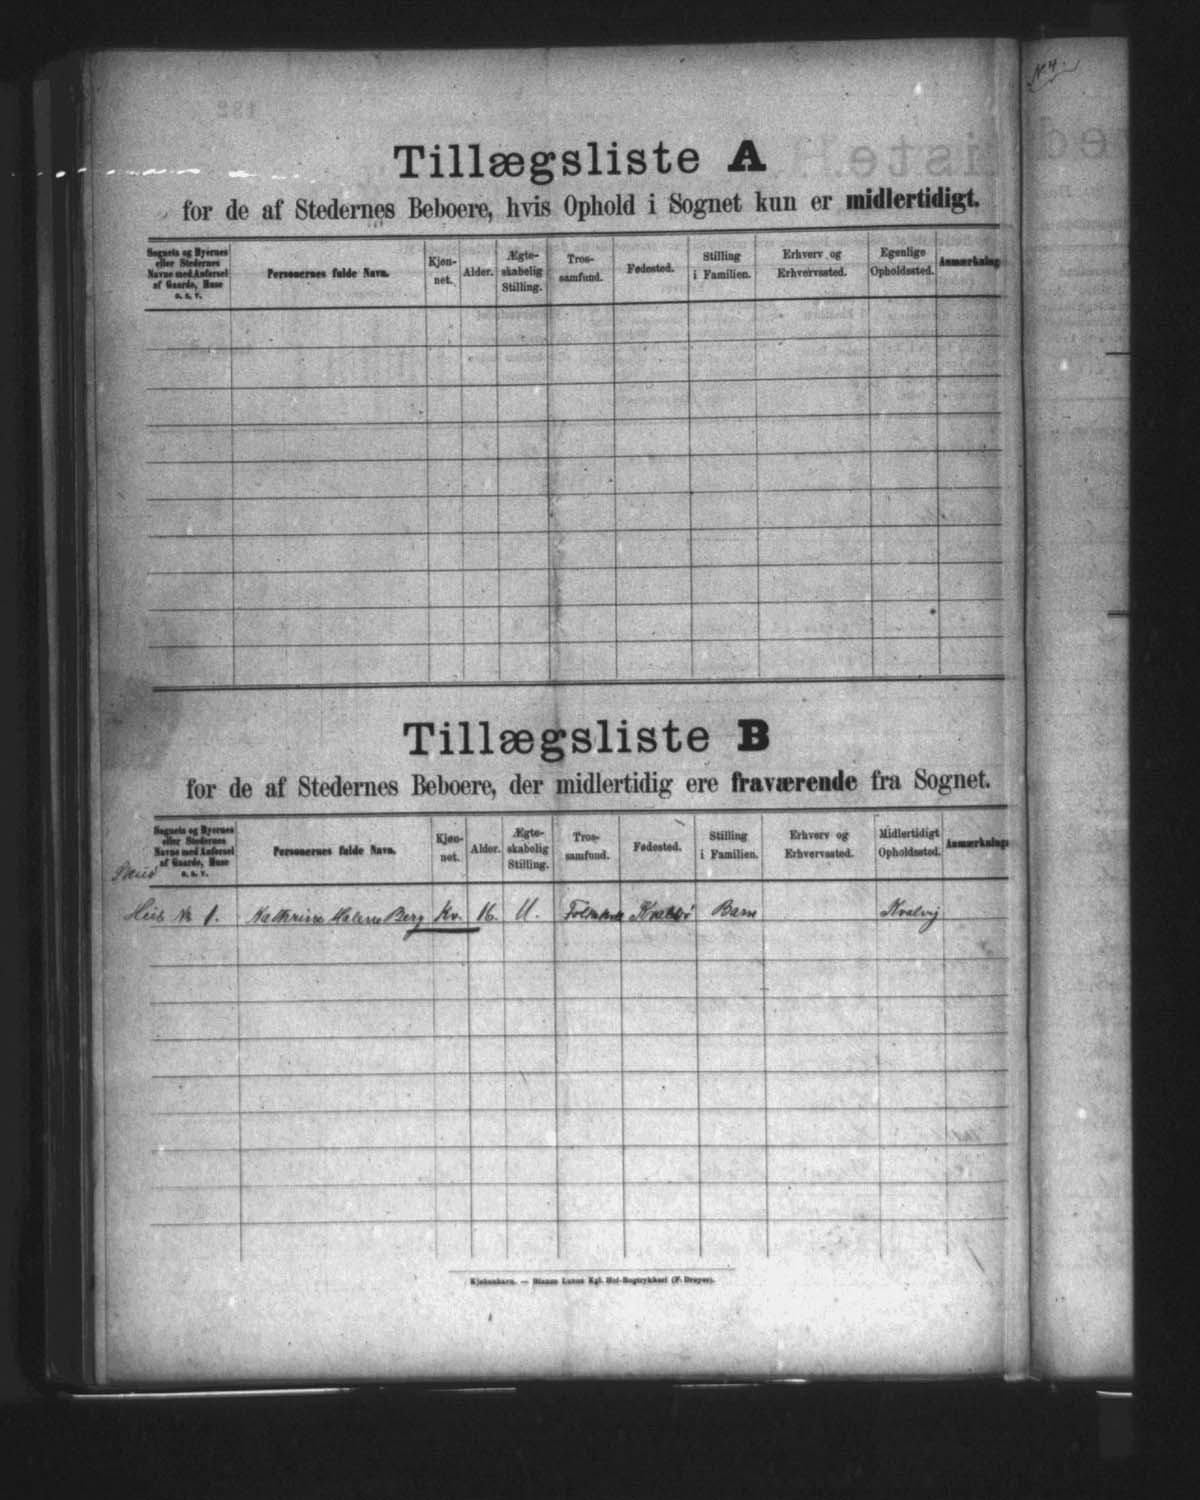 Tillægsliste A
for de af Stedernes Beboere, hvis Ophold i Sognet kun er midlertidigt.
Sognets og Byernes eller Stedernes Navne med Anførsel af Gaarde, Huse o. s. v. Personernes fulde Navn. Kjøn-net. Alder. Ægte-skabelig Stilling. Tros-samfund. Fødested. Stilling i Familien. Erhverv og Erhvervssted. Egenlige Opholdssted. Anmærkning
Tillægsliste B
for de af Stedernes Beboere, der midlertidig ere fraværende fra Sognet.
Sognets og Byernes eller Stedernes Navne med Anførsel af Gaarde, Huse o. s. v. Personernes fulde Navn. Kjøn-net. Alder. Ægte-skabelig Stilling. Tros-samfund. Fødested. Stilling i Familien. Erhverv og Erhvervssted. Midlertidigt Opholdssted. Anmærkning
Hus № 1. Kathrine Helene Berg Kv. 16. U. Barn Kvalvig
Kjøbenhavn. — Bianco Lunos Kgl. Hof-Bogtrykkeri (F. Dreyer).